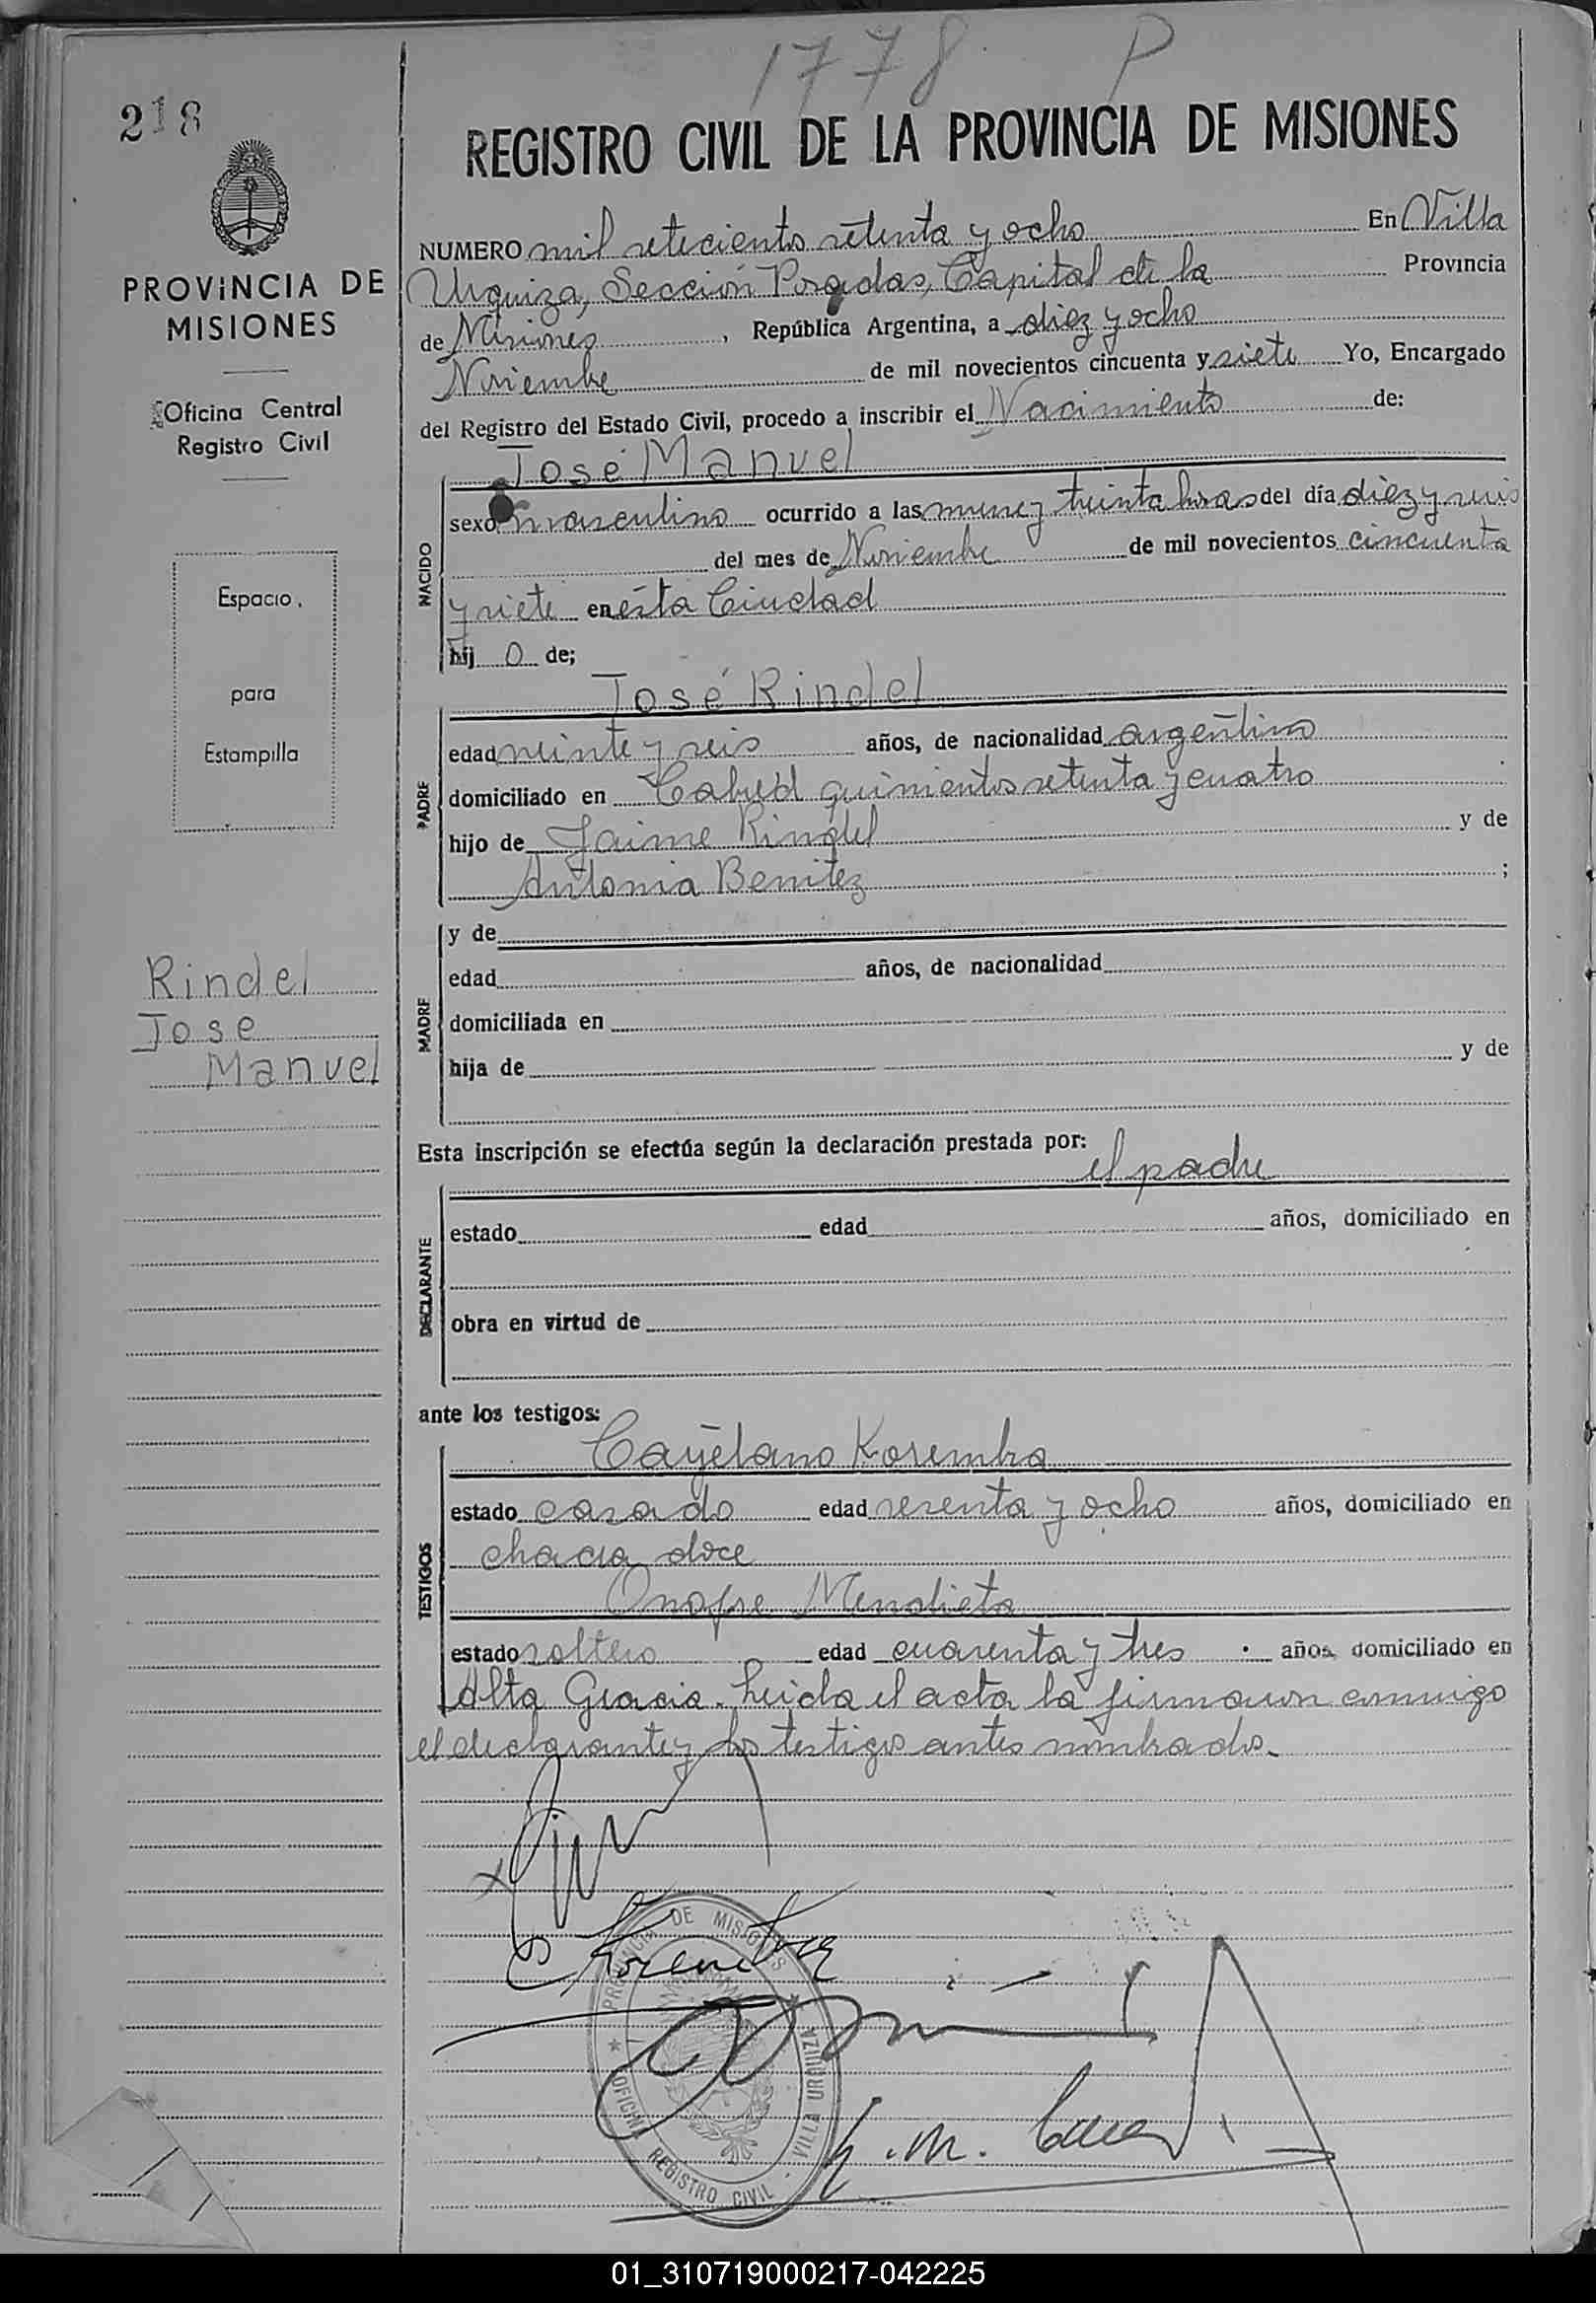 1778 P
218
REGISTRO CIVIL DE LA PROVINCIA DE MISIONES
PROVINCIA DE
MISIONES
Oficina Central
Registro Civil
Espacio
para
Estampilla
Rindel
Jose
Manuel
NUMERO mil setecientos setenta y ocho En Villa
Urquiza, Sección Posadas, Capital de la Provincia
de Misiones, República Argentina, a diez y ocho
Noviembre de mil novecientos cincuenta y siete Yo, Encargado
del Registro del Estado Civil, procedo a inscribir el Nacimiento de:
José Manuel
NACIDO
sexo masculino ocurrido a las nueve y treinta horas del día diez y seis
del mes de Noviembre de mil novecientos cincuenta
y siete en ésta Ciudad
hij o de;
José Rindel
PADRE
edad veinte y seis años, de nacionalidad argentino
domiciliado en Cabred quinientos setenta y cuatro
hijo de Jaime Rindel y de
Antonia Benitez ;
MADRE
y de
edad años, de nacionalidad
domiciliada en
hija de y de
Esta inscripción se efectúa según la declaración prestada por:
el padre
DECLARANTE
estado edad años, domiciliado en
obra en virtud de
ante los testigos:
Cayetano Koremba
TESTIGOS
estado casado edad sesenta y ocho años, domiciliado en
chacra doce
Onofre Mendieta
estado soltero edad cuarenta y tres años, domiciliado en
Alta Gracia. Leida el acta la firmaron conmigo
el declarante y los testigos antes nombrados.
PROVINCIA DE MISIONES
OFICINA REGISTRO CIVIL - VILLA URQUIZA
01_310719000217-042225